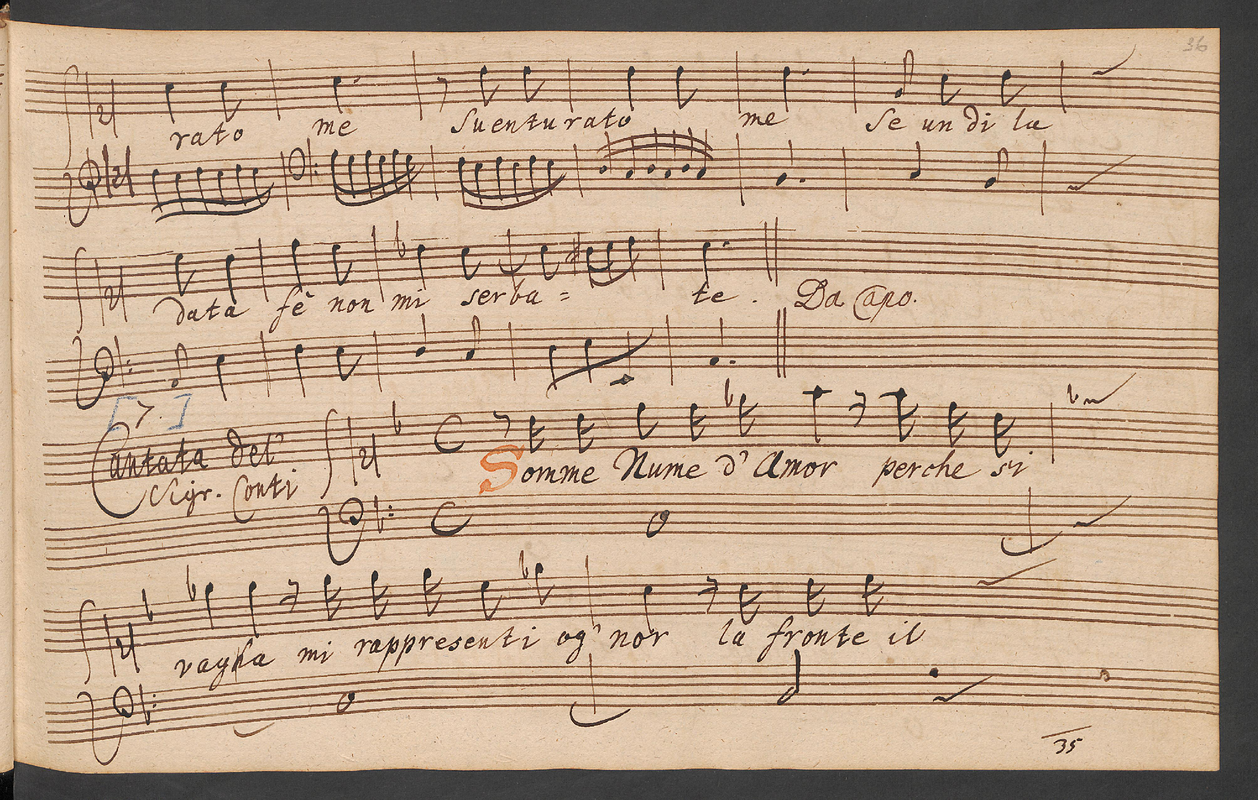 36
rato me Suenturato me Se un di la
data fè non mi serba = te . Da Capo.
[7.]
Cantata del'
Sigr. Conti
Somme Nume d' Amor perche si
vagha mi rappresenti og'nor la fronte il
35